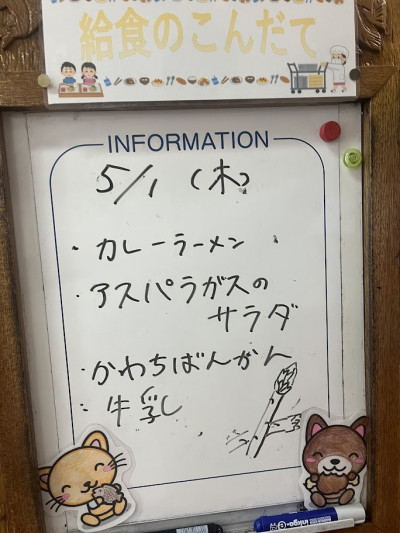 給食のこんだて
INFORMATION
5/1 (木)
・カレーラーメン
・アスパラガスの
サラダ
・かわちばんかん
・牛乳